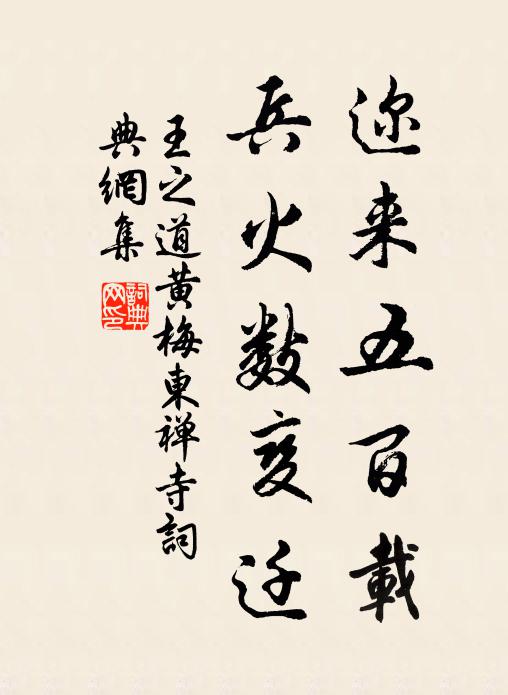 迩来五百載
兵火数变迁
王之道黄梅東禅寺詞
典網集
詞典網印